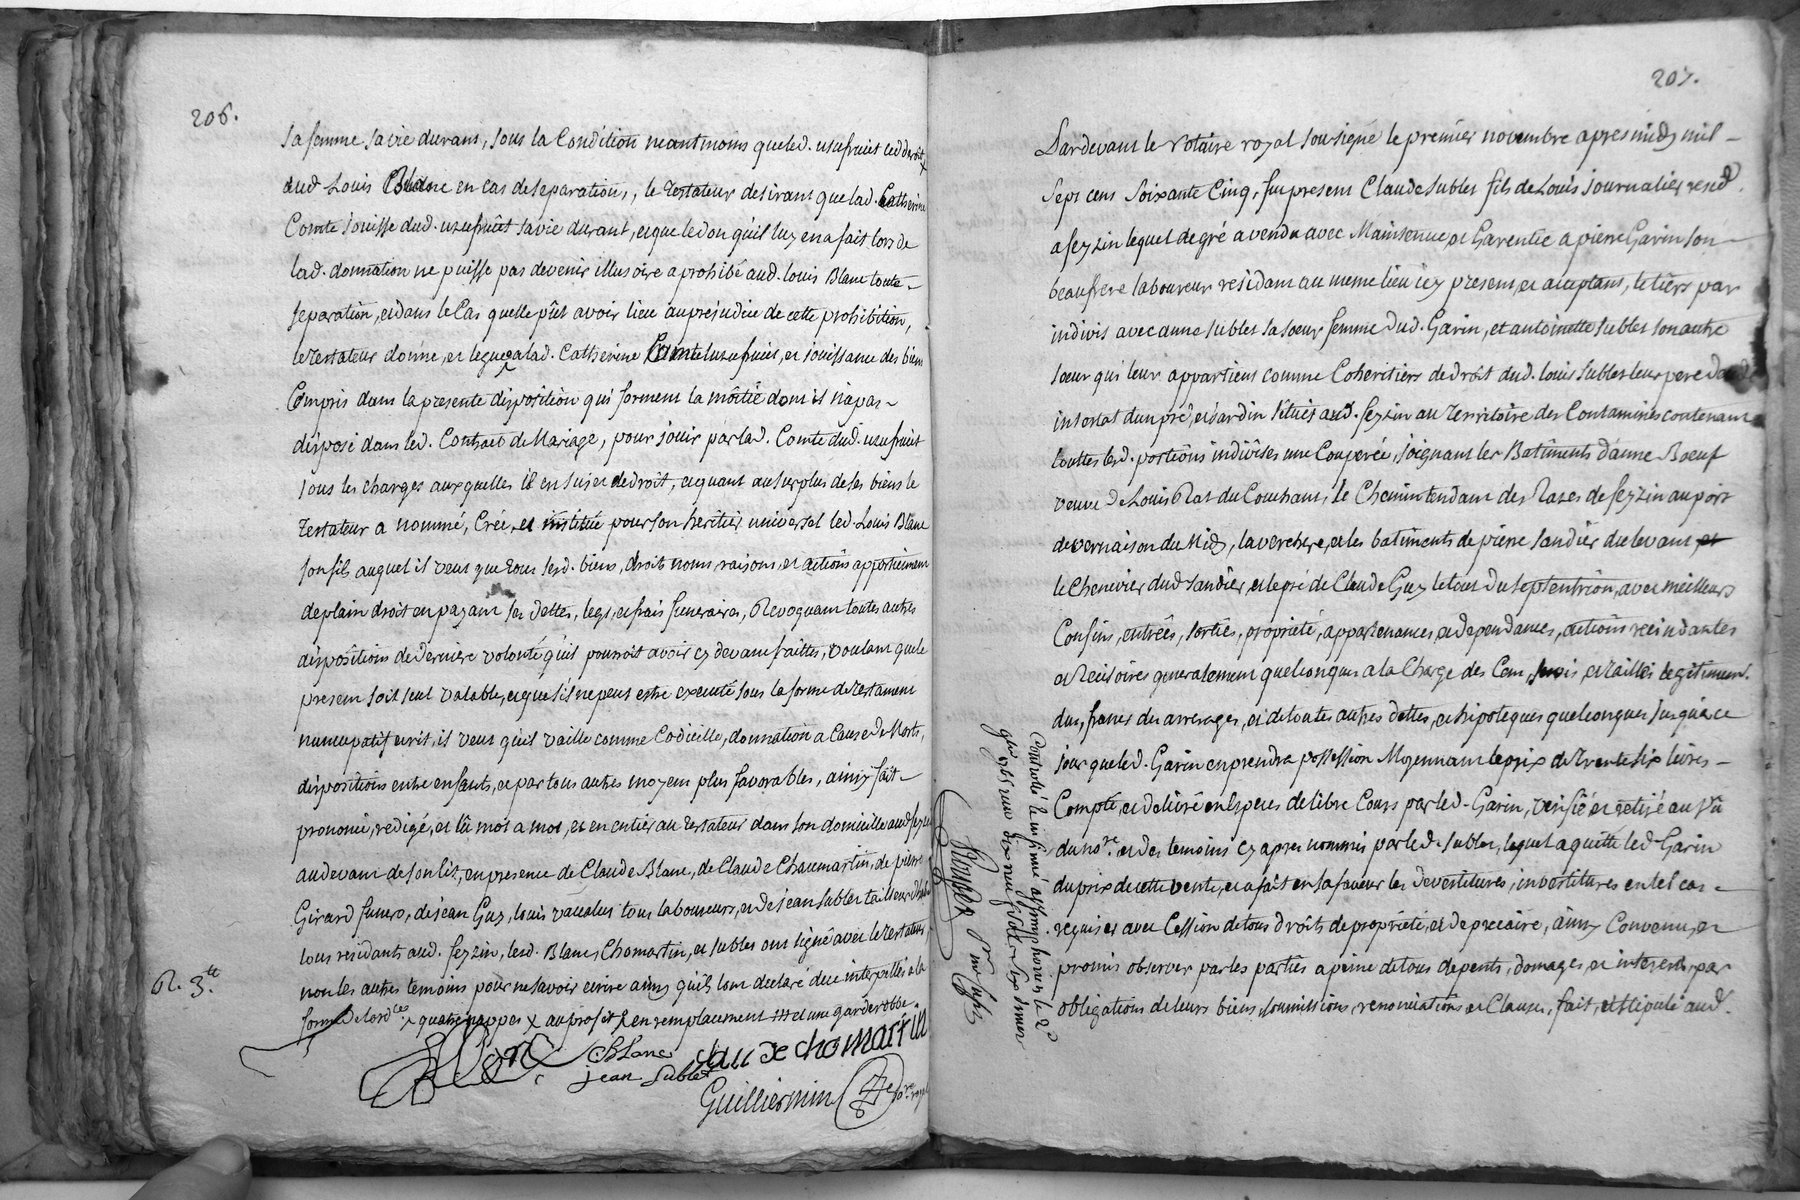 206.
sa femme sa vie durant, sous la Condition neantmoins que led. usufruict ced droit
aud Louis Blanc en cas de separation, le testateur desirant que lad. Catherine
Comte jouisse dud. usufruit sa vie durant, et que le don qu'il luy en a fait lors de
lad. donnation ne puisse pas devenir illusoire a prohibé aud. louis Blanc toute
separation, et dans le Cas quelle pût avoir lieu au prejudice de cette prohibition,
le testateur donne, et legue a lad. Catherine Comte l'usufruit, et jouissance des biens
Compris dans la presente disposition qui forment la moitié dont il n'a pas
disposé dans led. Contract de Mariage, pour jouir par lad. Comte dud. usufruit
sous les charges auxquelles il en sujet de droit, et quant au surplus de ses biens le
testateur a nommé, Créé, et institué pour son heritier universel led. Louis Blanc
son fils auquel il veut que tous sesd. biens, droits noms raisons, et actions appartiennent
de plain droit en payant ses dettes, legs, et frais funeraires, Revoquant toutes autres
dispositions de derniere volonté qu'il pourroit avoir cy devant faittes, voulant que le
present soit seul valable, et que s'il ne peut estre executé sous la forme de testament
nuncupatif ecrit, il veut qu'il vaille comme Codicille, donnation a Cause de Mort,
dispositions entre enfants, et par tous autres moyens plus favorables, ainsy fait
prononcé, redigé, et lû mot a mot, et en entier au testateur dans son domicille aud feyzin
au devant de son lit, en presence de Claude Blanc, de Claude Chaumartin, de pierre
Girard furero, de jean Guy, louis vacalus tous laboureurs, et de jean sublet tailleur d'habits
tous residants aud. feyzin, lesd. Blanc, Chomartin, et sublet ont signé avec le testateur,
non les autres temoins pour ne savoir ecrire ainsy qu'ils l'ont declaré de ce interpellés a la
forme de l'ord.ce x quatre nappes x au profit x en remplacement et une garderobbe
R. 3.tt
Blanc
CBlanc
jean Sublet
claude chomartin
Guilliermin no.re royal
207.
Pardevant le Notaire royal soussigné le premier novembre apres midy mil
sept cens soixante Cinq, fut present Claude sublet fils de Louis journalier resid.
a feyzin lequel de gré a vendu avec Maintenue et Garentie a pierre Garin son
beaufrere laboureur residant au meme lieu icy present, et acceptant, le tiers par
indivis avec anne sublet sa soeur femme dud. Garin, et antoinette sublet son autre
soeur qui leur appartient comme Coheritiers de droit dud. louis sublet leur pere
intestat d'un pré, et jardin situés aud. feyzin au territoire des Contamines contenant
touttes lesd. portions indivises une Couperée, joignant les Batiments d'anne Boeuf
veuve de Louis Rat du Couchant, le Chemin tendant des Razes de feyzin au port
de vernaison du Midy, la verchere, et les batiments de pierre sandier du levant et
le Chenevier dud sandier, et le pré de Claude Guy le tout du septentrion, avec meilleurs
Confins, entrées, sorties, proprieté, appartenances, et dependances, actions rescindantes
et rescisoires generalement quelconques a la Charge des Cens, servis, et tailles legitimem.
dus, francs des arrerages, et de toutes autres dettes, et hipoteques quelconques jusqu'a ce
jour que led. Garin en prendra possession Moyennant le prix de trente six livres
Compté, et delivré en Especes de libre Cours par led. Garin, verifié et retiré au vû
du no.re et des temoins cy apres nommés par led. sublet, lequel a quitté led Garin
du prix de cette vente, et a fait en sa faveur les devestitures, investitures en tel cas
requises avec Cession de tous droits de proprieté, et de precaire, ainsy Convenu, et
promis observer par les parties a peine de tous depents, domages, et interests par
obligations de leurs biens, soumissions, renonciations, et Clauses, fait, et stipulé aud.